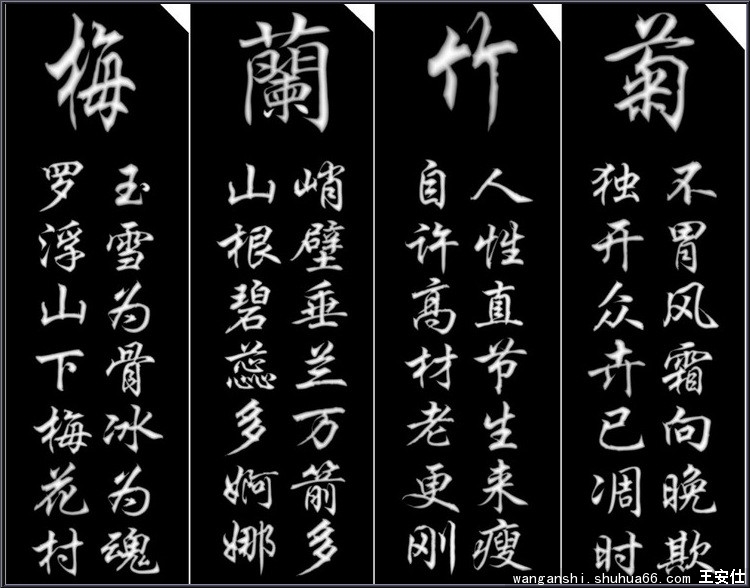 梅
罗浮山下梅花村
玉雪为骨冰为魂
蘭
峭壁垂兰万箭多
山根碧蕊多婀娜
竹
人性直节生来瘦
自许高材老更刚
菊
不胃风霜向晚欺
独开众卉已凋时
wanganshi.shuhua66.com 王安仕